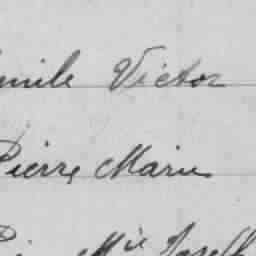 Emile Victor
Pierre Marie
Mie Joseph